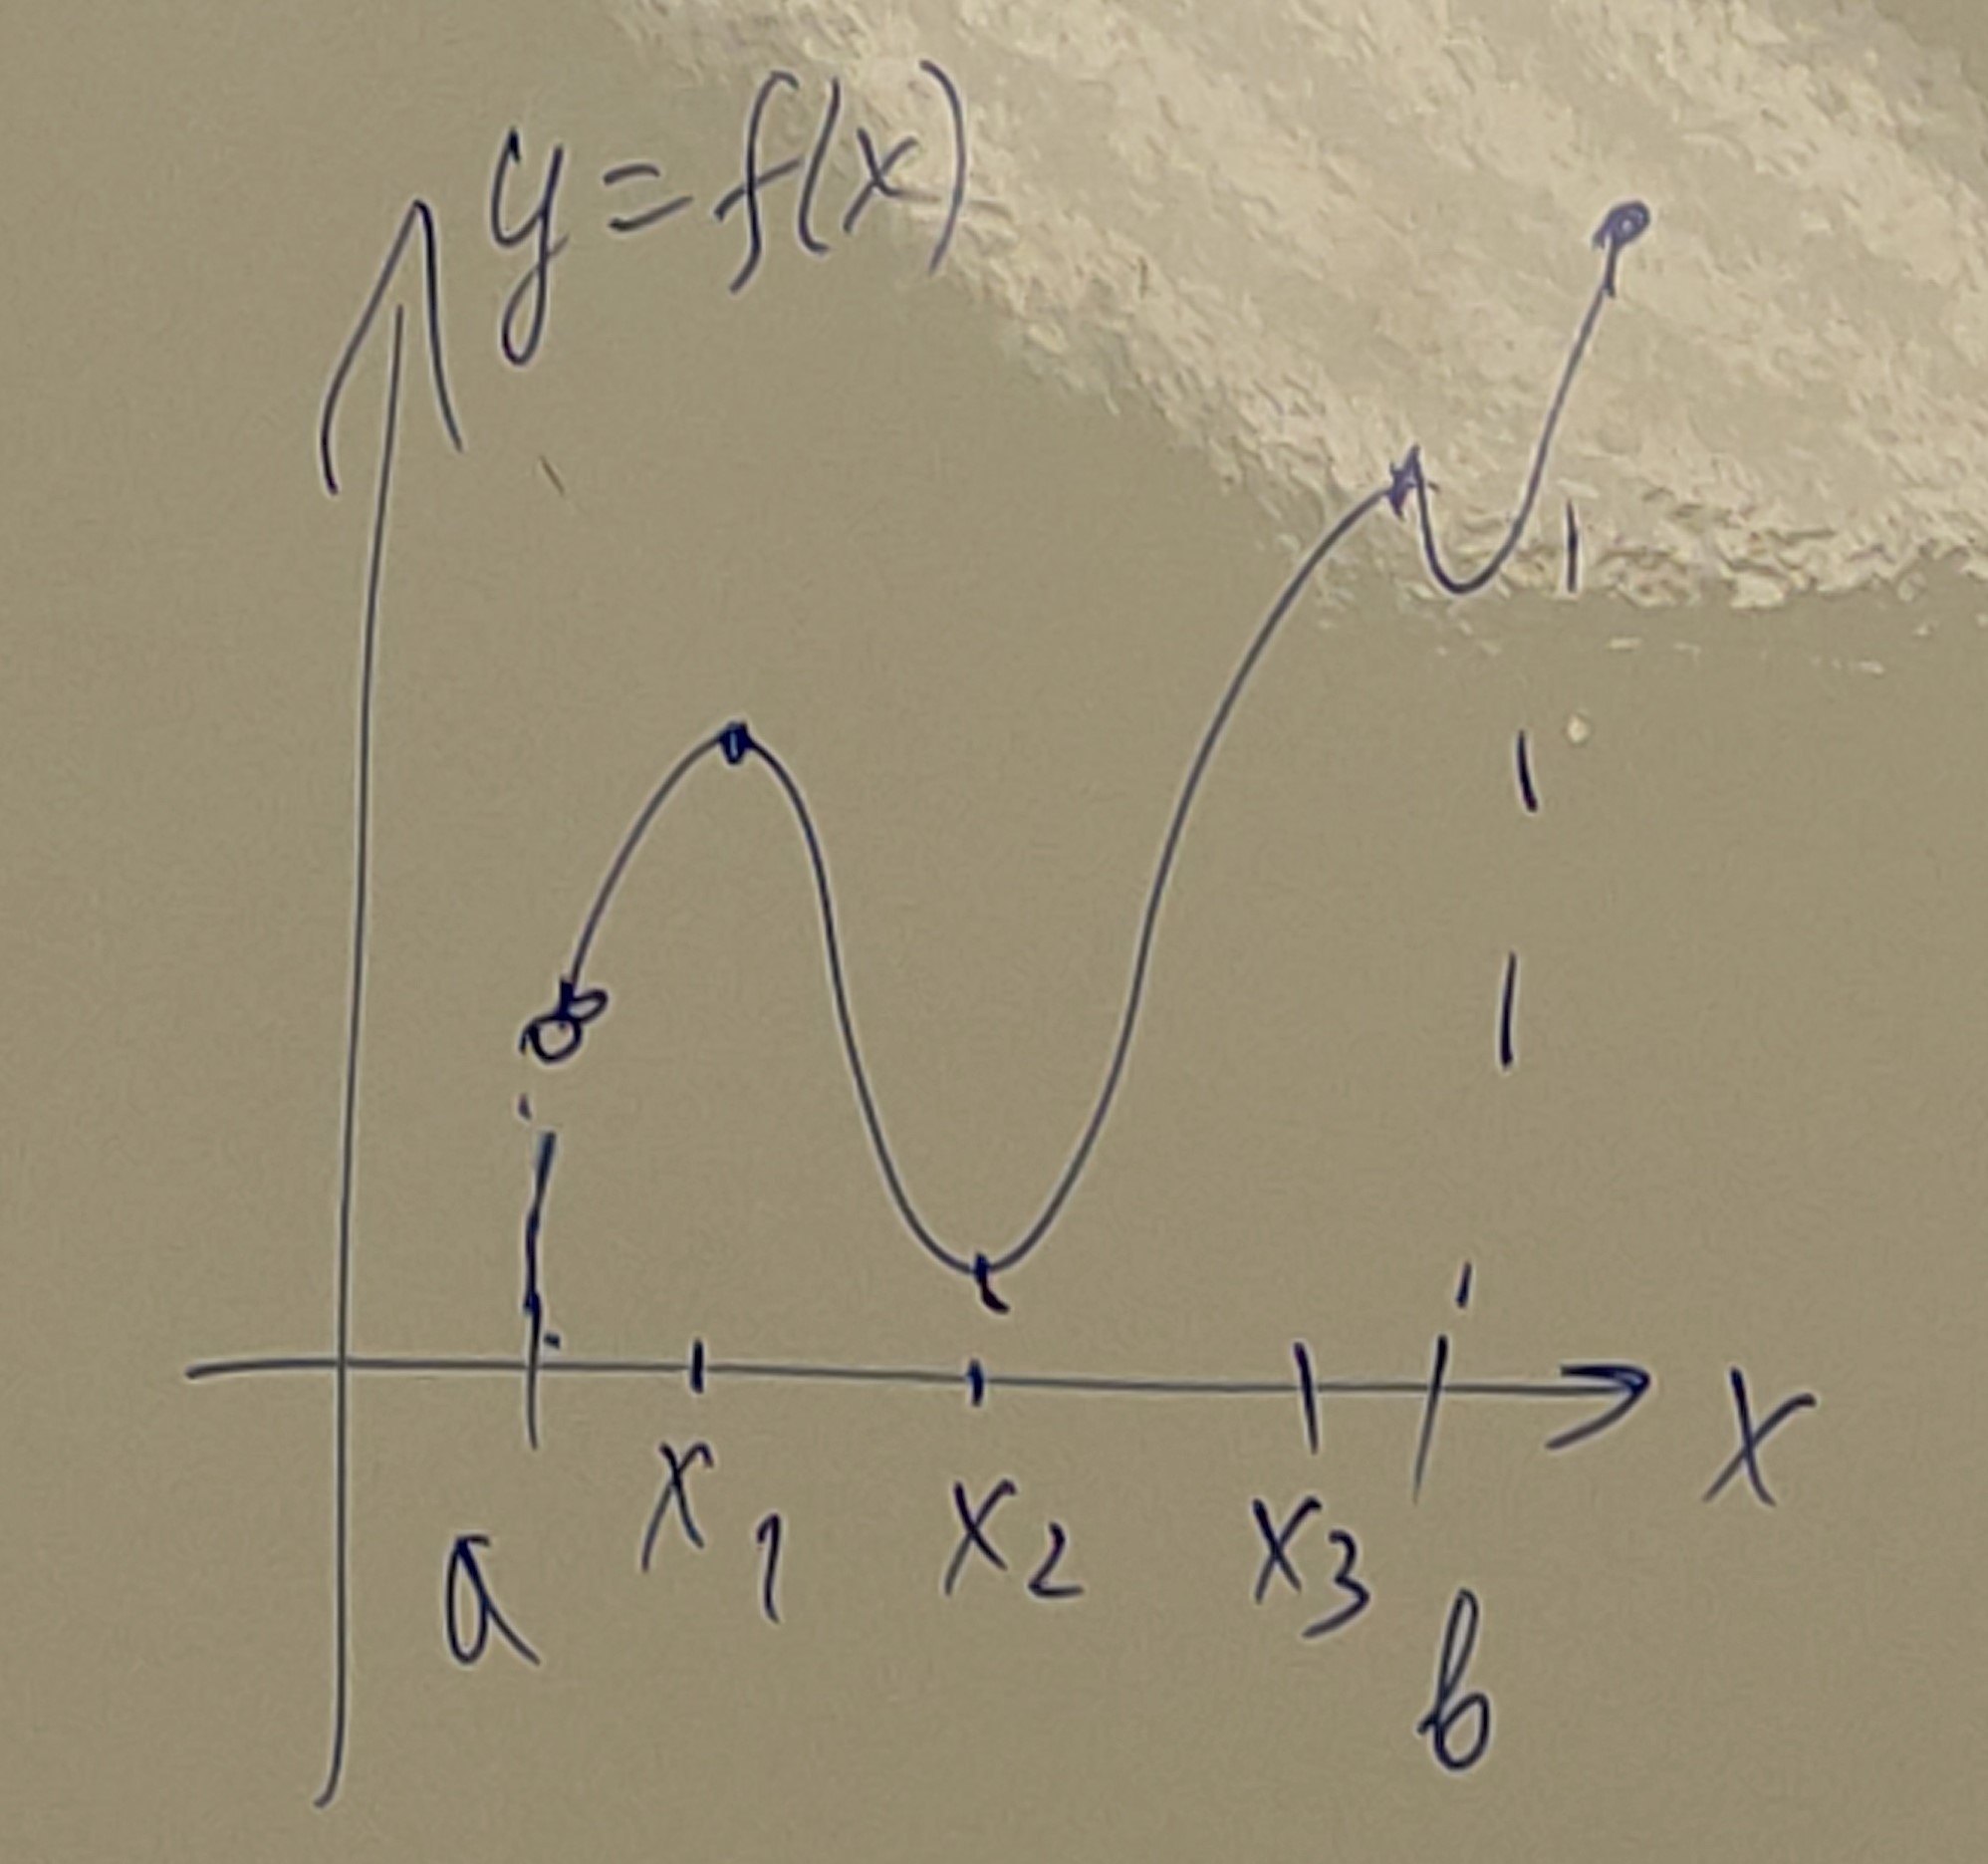 y=f(x)
a x₁ x₂ x₃ b x